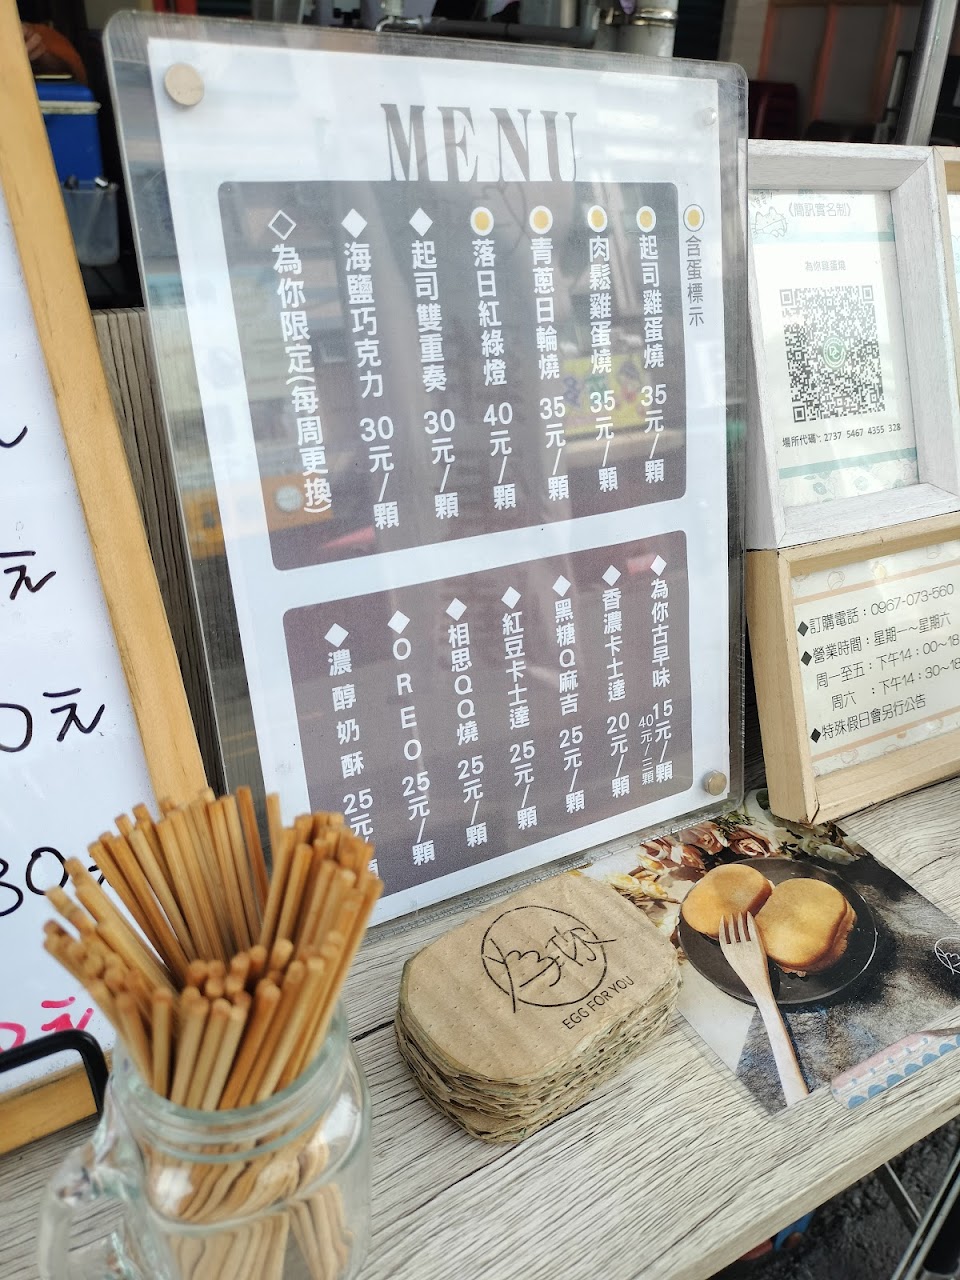 MENU
含蛋標示
起司雞蛋燒 35元/顆
肉鬆雞蛋燒 35元/顆
青蔥日輪燒 35元/顆
落日紅綠燈 40元/顆
起司雙重奏 30元/顆
海鹽巧克力 30元/顆
為你限定(每周更換)
為你古早味 15元/顆
40元/三顆
香濃卡士達 20元/顆
黑糖Q麻吉 25元/顆
紅豆卡士達 25元/顆
相思QQ燒 25元/顆
OREO 25元/顆
濃醇奶酥 25元/顆
《簡訊實名制》
為你雞蛋燒
場所代碼: 2737 5467 4355 328
◆訂購電話：0967-073-560
◆營業時間：星期一~星期六
周一至五：下午14：00~18
周六　：下午14：30~18
◆特殊假日會另行公告
元
0元
30元
元
EGG FOR YOU